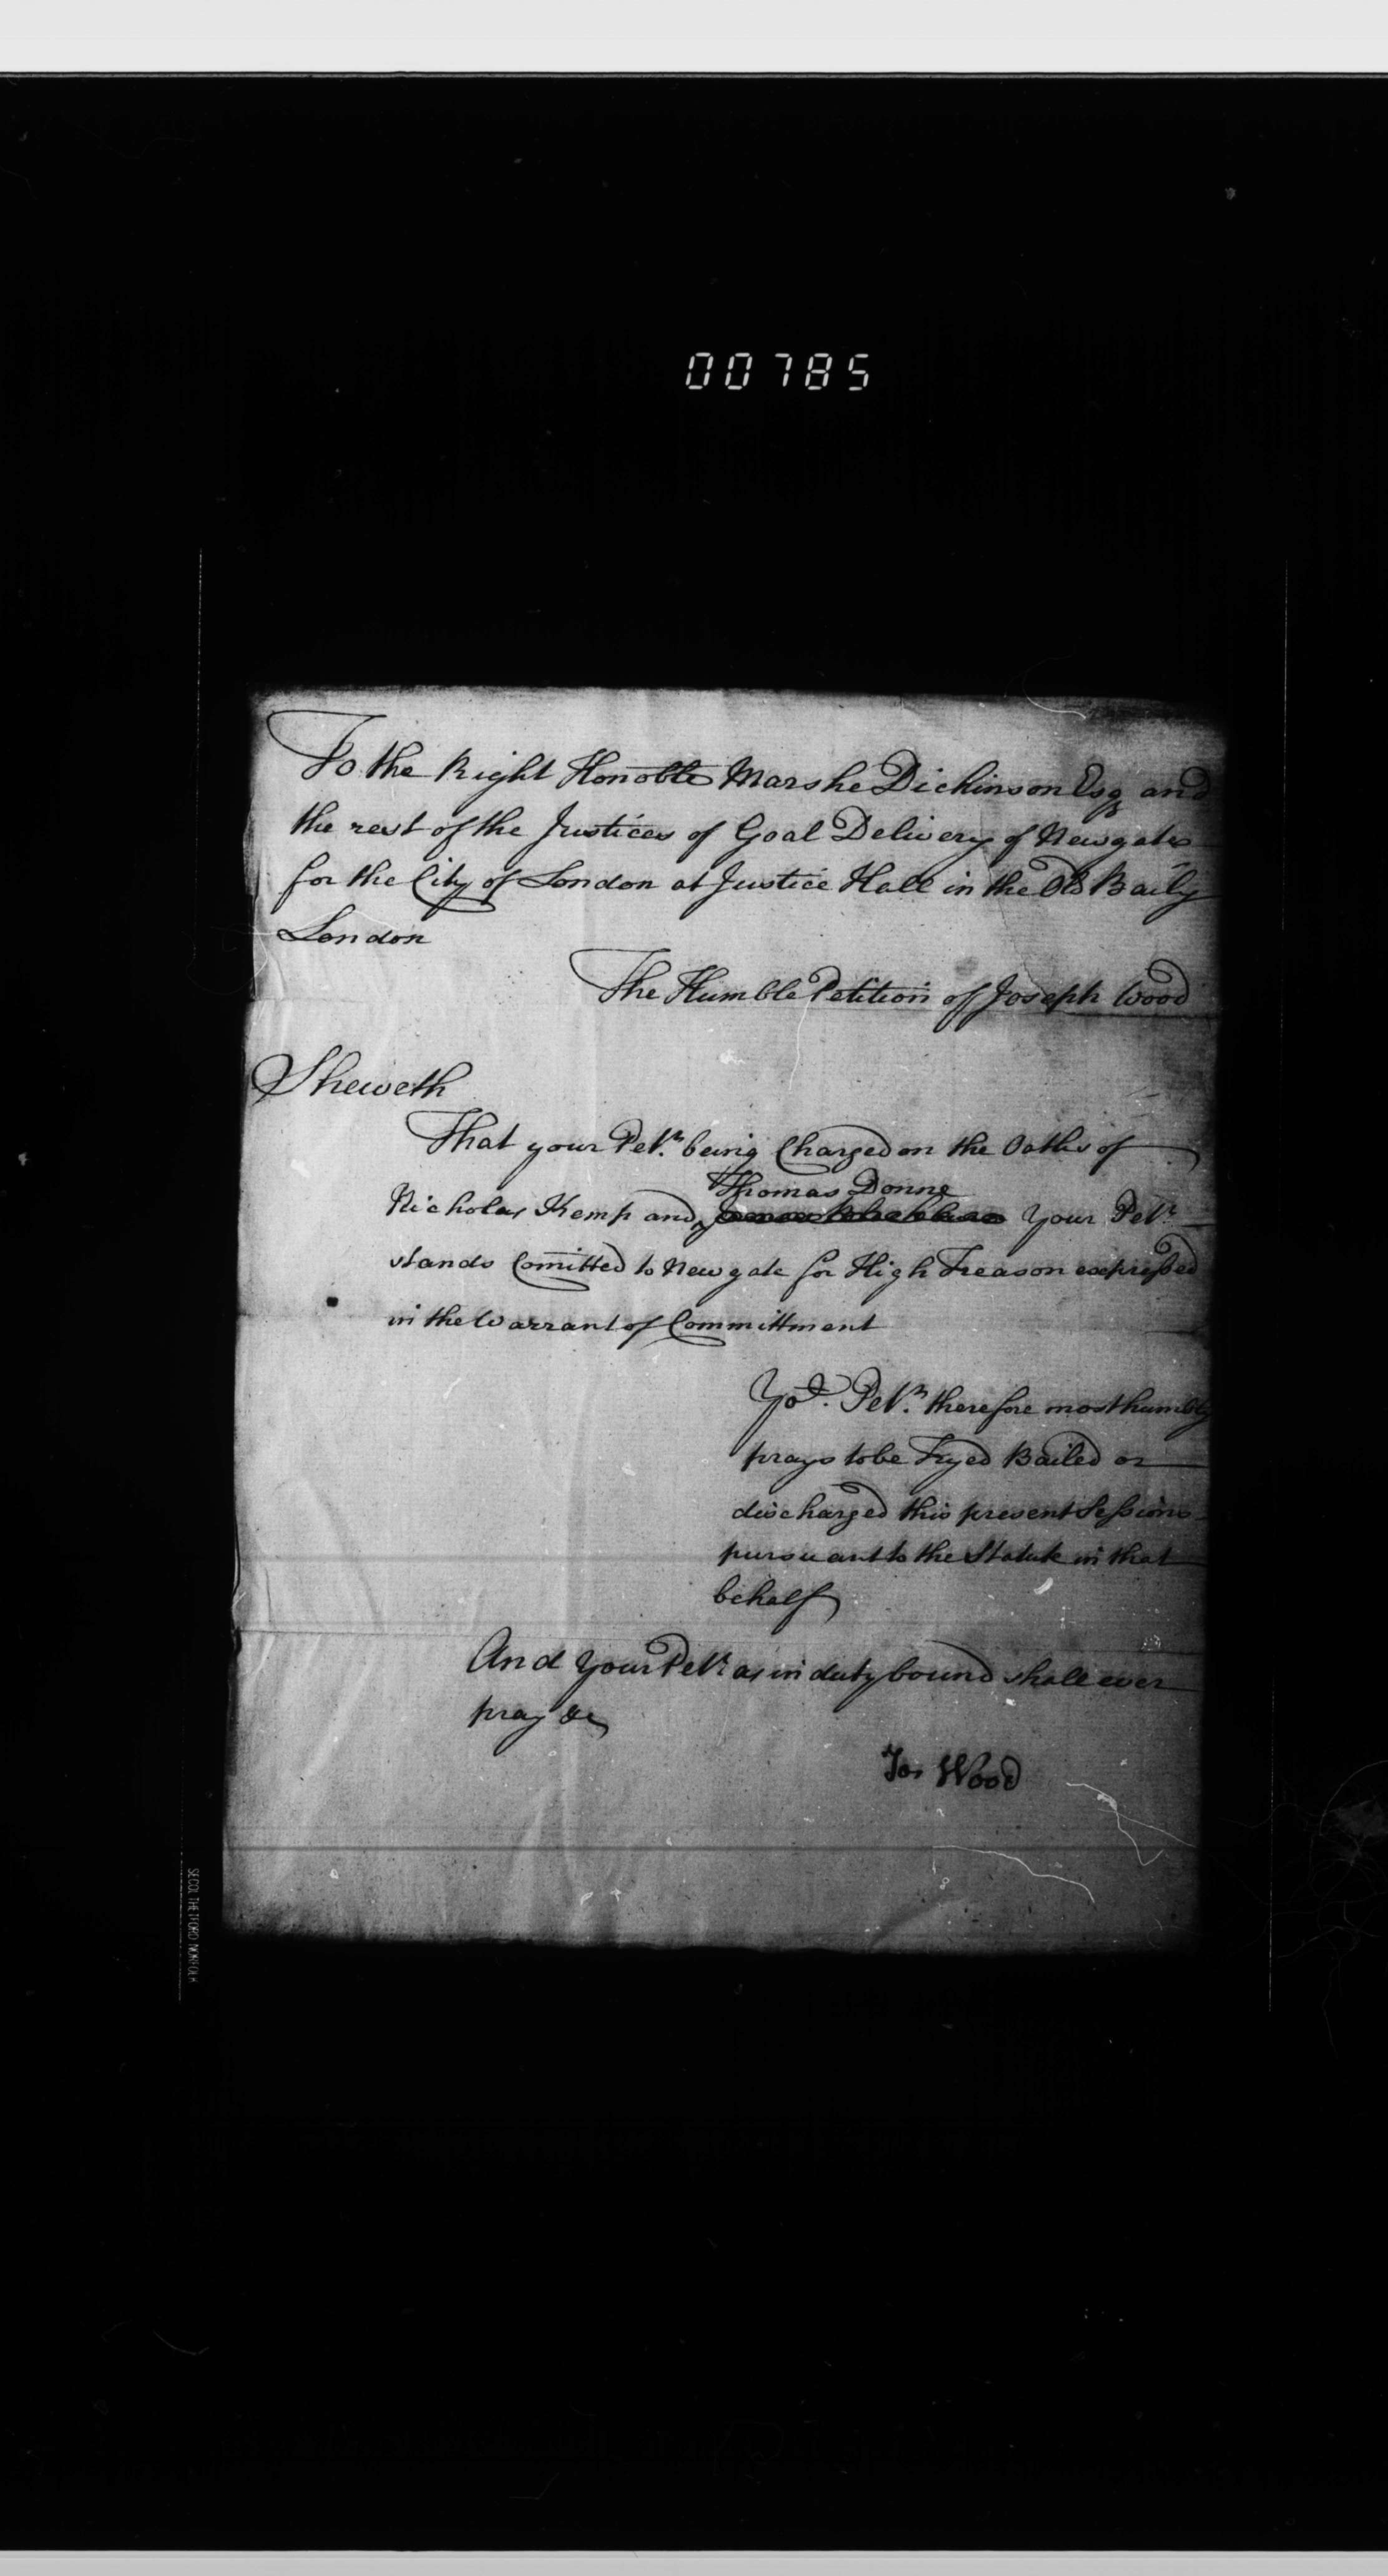 00785
To the Right Honoble Marshe Dickinson Esq and
the rest of the Justices of Goal Delivery of Newgate
for the City of London at Justice Hall in the Old Baily
London
The Humble Petition of Joseph Wood
Sheweth
That your Petr. being Charged on the Oaths of
Thomas Donne
Nicholas Kemp and Your Petr
stands Comitted to Newgate for High Treason expressed
in the Warrant of Committment
Yor. Petr. therefore most humbly
prays to be Tryed Bailed or
discharged this present Sessions
pursuant to the Statute in that
behalf
And Your Petr as in duty bound shall ever
pray &c
Jos Wood
SECOL THETFORD NORFOLK